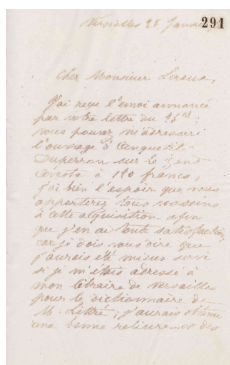 Versailles 28 Janvier
291
Cher Monsieur Leroux,
J'ai reçu l'envoi annoncé
par votre lettre du 26 ct ;
vous pouvez m'adresser
l'ouvrage d'Anquetil-
Duperron sur le Zend-
Avesta à 120 francs,
j'ai bien l'espoir que vous
apporterez tous vos soins
à cette acquisition afin
que j'en ai toute satisfaction,
car je dois vous dire que
j'aurais été mieux servi
si je m'étais adressé à
mon libraire de Versailles
pour le dictionnaire de
M. Littré, j'aurais obtenu
une bonne reliure et des